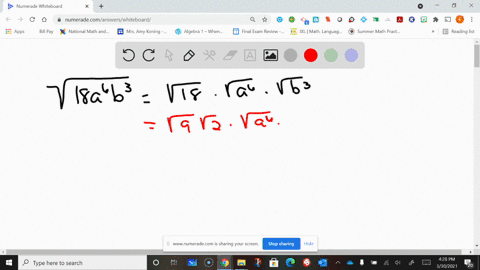 Numerade Whiteboard
numerade.com/answers/whiteboard/
Apps
Bill Pay
National Math and...
Mrs. Amy Koning -...
Algebra 1 – Whem...
Final Exam Review -...
IXL | Math, Language...
Summer Math Pract...
Reading list
√18a⁶b³ = √18 · √a⁶ · √b³
= √9 √2 · √a⁶ ·
www.numerade.com is sharing your screen.
Stop sharing
Hide
Type here to search
4:20 PM
5/30/2021